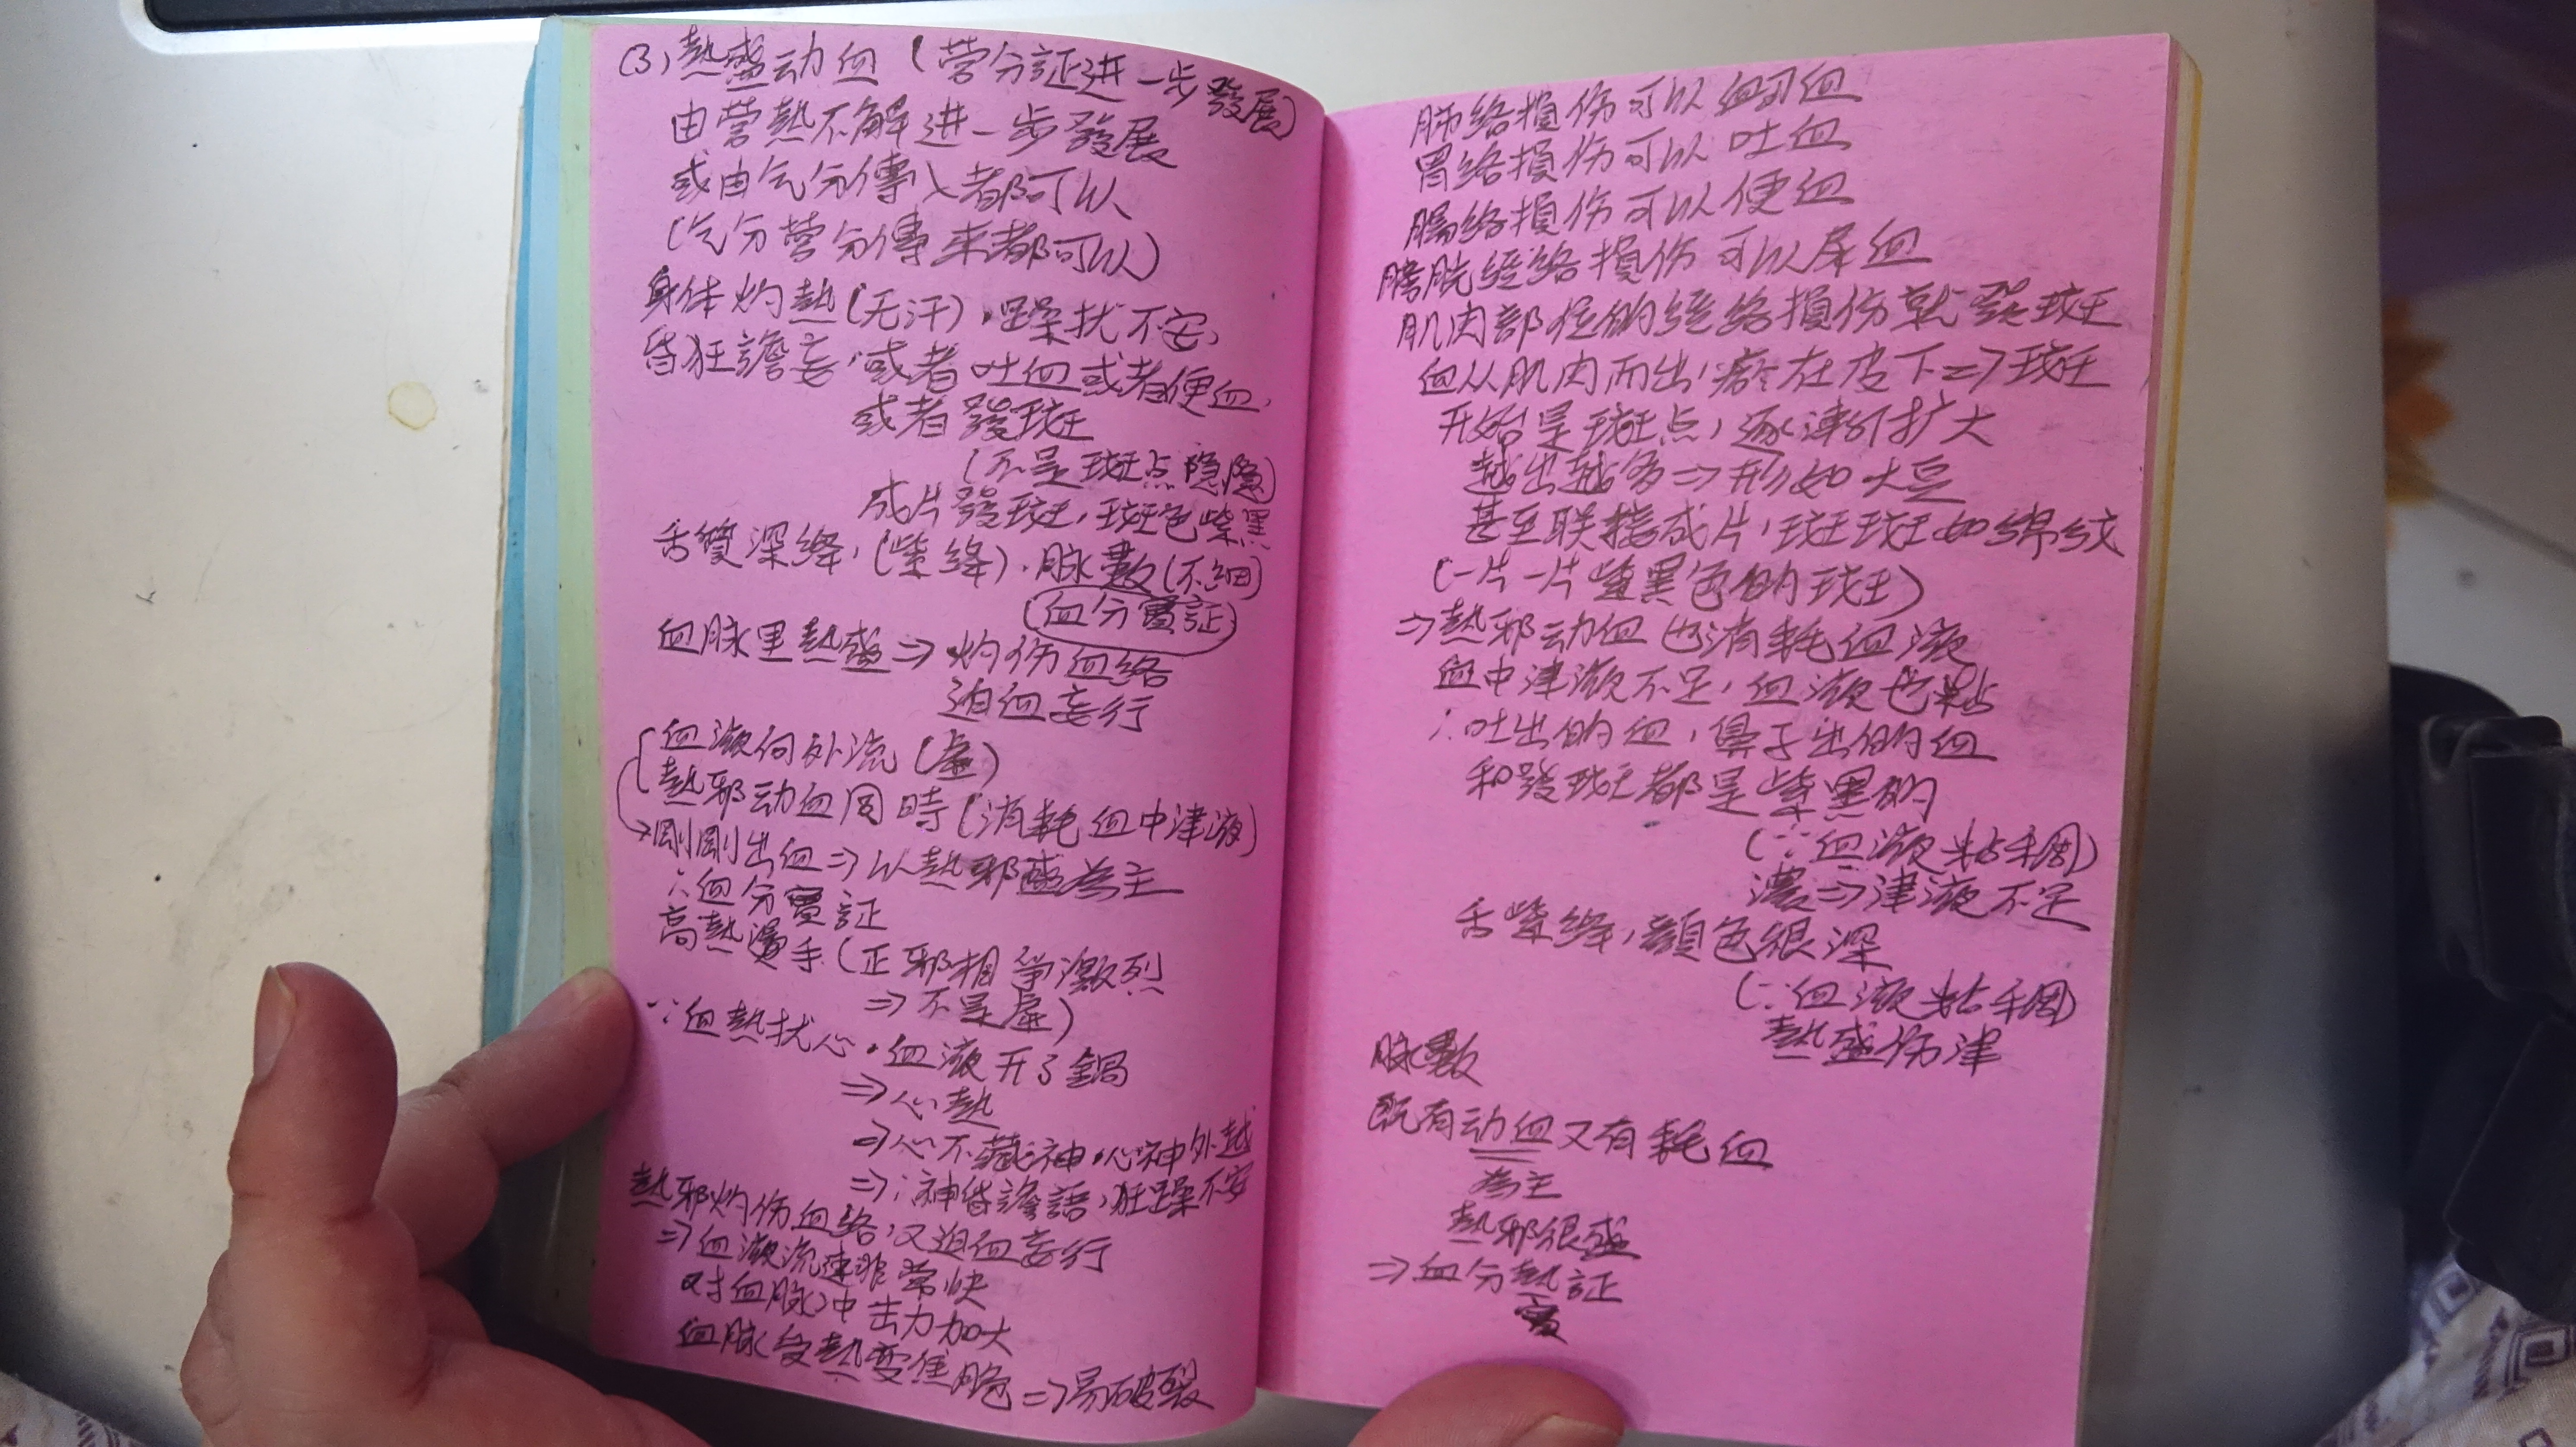 (3) 熱盛动血 (营分証进一步發展)
由营熱不解进一步發展
或由气分傳入都可以
(气分营分傳来都可以)
身体灼熱(无汗),躁扰不安,
昏狂譫妄,或者吐血或者便血,
或者發斑
(不是斑点隐隐)
成片發斑,斑色紫黑
舌質深绛,(紫绛),脉數(不細)
血分實証
血脉里熱盛⇒灼伤血络
迫血妄行
血液向外流(虚)
熱邪动血同時(消耗血中津液)
→剛剛出血⇒以熱邪盛為主
∴血分實証
高熱燙手(正邪相争激烈
⇒不是虚)
∵血熱扰心,血液开了鍋
⇒心熱
⇒心不藏神,心神外越
⇒∴神昏譫語,狂躁不安
熱邪灼伤血络,又迫血妄行
⇒血液流速非常快
对血脉冲击力加大
血脉受熱变焦脆⇒易破裂
肺络損伤可以衄血
胃络損伤可以吐血
腸络損伤可以便血
膀胱经络損伤可以尿血
肌肉部位的经络損伤就發斑
血从肌肉而出,瘀在皮下⇒斑
开始是斑点,逐漸扩大
越出越多⇒形如大豆
甚至联接成片,斑斑如綿纹
(一片一片紫黑色的斑)
⇒熱邪动血也消耗血液
血中津液不足,血液也粘
∴吐出的血,鼻子出的血
和發斑都是紫黑的
(∵血液粘稠)
濃⇒津液不足
舌紫绛,顏色很深
(∵血液粘稠)
熱盛伤津
脉數
既有动血又有耗血
為主
熱邪很盛
⇒血分熱証
實